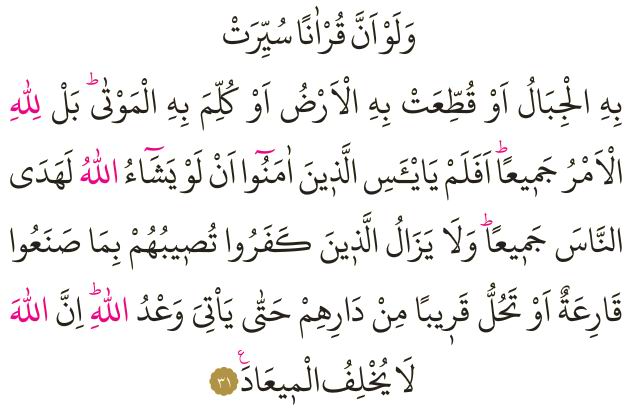 وَلَوْ اَنَّ قُرْاٰنًا سُيِّرَتْ
بِهِ الْجِبَالُ اَوْ قُطِّعَتْ بِهِ الْاَرْضُ اَوْ كُلِّمَ بِهِ الْمَوْتٰىۜ بَلْ لِلّٰهِ
الْاَمْرُ جَم۪يعًاۜ اَفَلَمْ يَايْـَٔسِ الَّذ۪ينَ اٰمَنُٓوا اَنْ لَوْ يَشَٓاءُ اللّٰهُ لَهَدَى
النَّاسَ جَم۪يعًاۜ وَلَا يَزَالُ الَّذ۪ينَ كَفَرُوا تُص۪يبُهُمْ بِمَا صَنَعُوا
قَارِعَةٌ اَوْ تَحُلُّ قَر۪يبًا مِنْ دَارِهِمْ حَتّٰى يَأْتِيَ وَعْدُ اللّٰهِۜ اِنَّ اللّٰهَ
لَا يُخْلِفُ الْم۪يعَادَ۟ ع ٣١